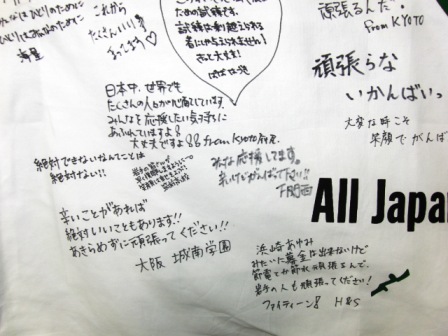 ひとりじゃないよ
これから
たくさんいい事
まってるよ♡
ための試練です。
試練は乗り越えられる
者にしか与えられません!
きっと大丈夫!
頑張るんだ!
from KYOTO
頑張らな
いかんばいっ
大変な時こそ
笑顔でがんば
日本中、世界でも
たくさんの人々が心配しています
みんなを応援したい気持ちに
あふれていますよ!
大丈夫ですよ!! from Kyoto
絶対できないなんてことは
絶対ない!!
みんな応援してます。
辛いけどがんばって下さい!!
下関西
辛いことがあれば
絶対いいこともあります!!
あきらめずに頑張ってください!!
大阪 城南学園
All Japa
浜崎あゆみ
みたいな募金は出来ないけど
節電とか節水頑張るんで、
岩手の人も頑張ってください!
ファイティーン! H&S